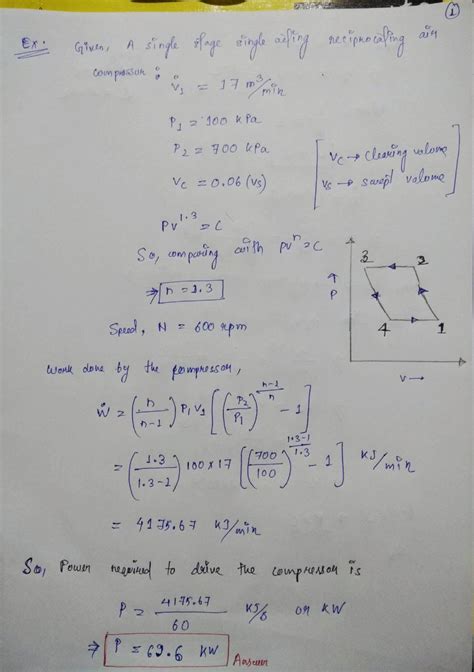 1
Ex: Given, A single stage single acting reciprocating air
compressor:
V̇₁ = 17 m³/min
P₁ = 100 kPa
P₂ = 700 kPa
Vc = 0.06 (Vs)
[Vc → Clearing volume
Vs → swept volume]
PV^1.3 = C
So, comparing with PV^n = C
⇒ n = 1.3
Speed, N = 600 rpm
3 2
↑
P
4 1
V →
Work done by the compressor,
Ẇ = (n/(n-1)) P₁V₁ [(P₂/P₁)^((n-1)/n) - 1]
= (1.3/(1.3-1)) 100×17 [(700/100)^((1.3-1)/1.3) - 1] KJ/min
= 4175.67 KJ/min
So, Power required to drive the compressor is
P = 4175.67/60 KJ/s or KW
⇒ P = 69.6 KW Answer